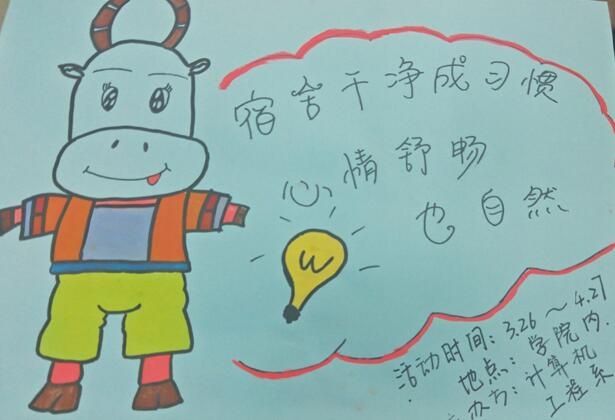 宿舍干净成习惯
心情舒畅
也自然
活动时间：3.26～4.27
地点：学院内
办方：计算机
工程系